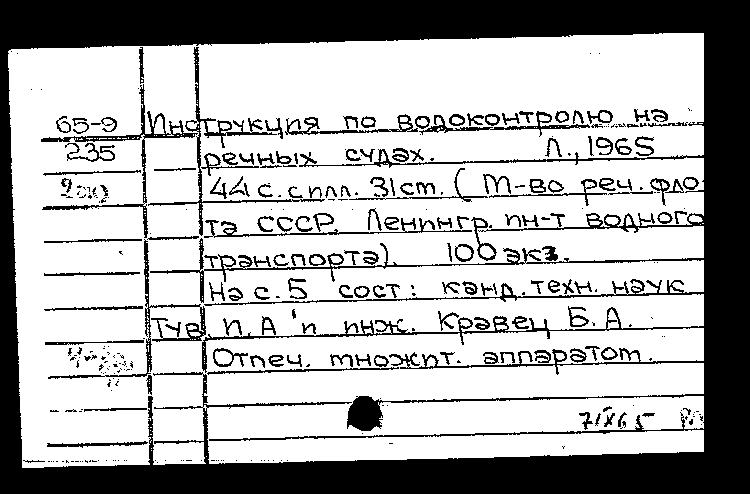 65-9 Инструкция по водоконтролю на
235 речных судах. Л., 1965
44 с. с илл. 31 см. (М-во реч. фло-
та СССР. Ленингр. ин-т водного
транспорта). 100 экз.
На с. 5 сост: канд. техн. наук
Тув. П. А и инж. Кравец Б. А.
Отпеч. множит. аппаратом.